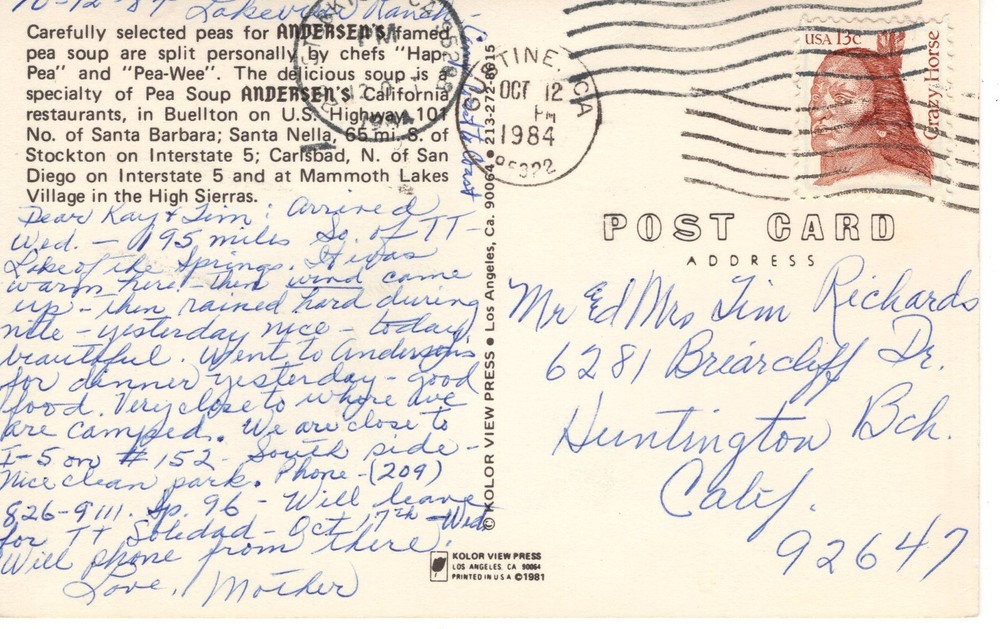 10-12-84 Lakeview Ranch -
Coast to Coast
Carefully selected peas for ANDERSEN'S famed
pea soup are split personally by chefs "Hap-
Pea" and "Pea-Wee". The delicious soup is a
specialty of Pea Soup ANDERSEN'S California
restaurants, in Buellton on U.S. Highway 101
No. of Santa Barbara; Santa Nella, 65 mi. S. of
Stockton on Interstate 5; Carlsbad, N. of San
Diego on Interstate 5 and at Mammoth Lakes
Village in the High Sierras.
Dear Kay & Jim: Arrived
Wed. - 195 miles So. of TT -
Lake of the Springs. It was
warm here - then wind came
up - then rained hard during
nite - yesterday nice - today
beautiful. Went to Anderson's
for dinner yesterday - good
food. Very close to where we
are camped. We are close to
I-5 on #152 - South side -
Nice clean park. Phone - (209)
826-9111. Sp. 96 - Will leave
for TT Soledad - Oct. 17th - Wed.
Will phone from there.
Love, Mother
© KOLOR VIEW PRESS • Los Angeles, Ca. 90064 • 213-272-8915
KOLOR VIEW PRESS
LOS ANGELES, CA 90064
PRINTED IN USA ©1981
GUSTINE, CA
OCT 12
PM
1984
95322
PM
USA 13c
Crazy Horse
POST CARD
ADDRESS
Mr Ed Mrs Jim Richards
6281 Briarcliff Dr.
Huntington Bch.
Calif.
92647